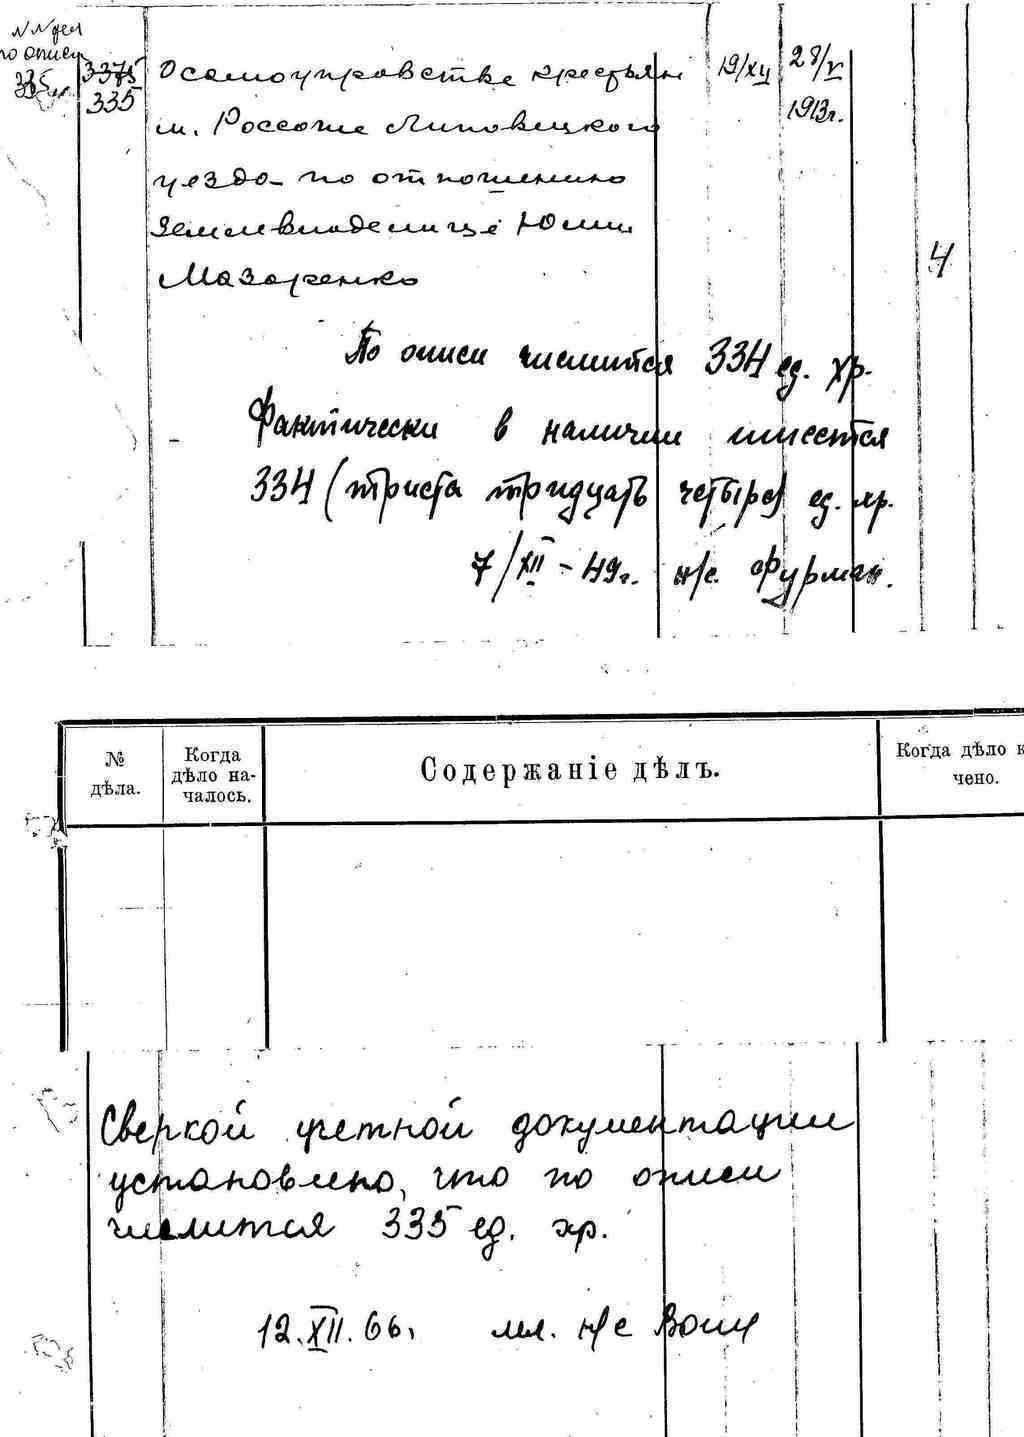 NN дел
по описи
335
3375
335
О самоуправстве крестьян
м. Россоше Липовецкого
уезда по отношению
землевладелице Юлии
Мазаренко
19/XII
28/V
1913г.
4
По описи числится 334 ед. хр.
Фактически в наличии имеется
334 (триста тридцать четыре) ед. хр.
7/XII - 49г. н/с. Фурман.
№
дѣла.
Когда
дѣло на-
чалось.
Содержаніе дѣлъ.
Когда дѣло к
чено.
Сверкой учетной документации
установлено, что по описи
числится 335 ед. хр.
12.XII.66. мл. н/с